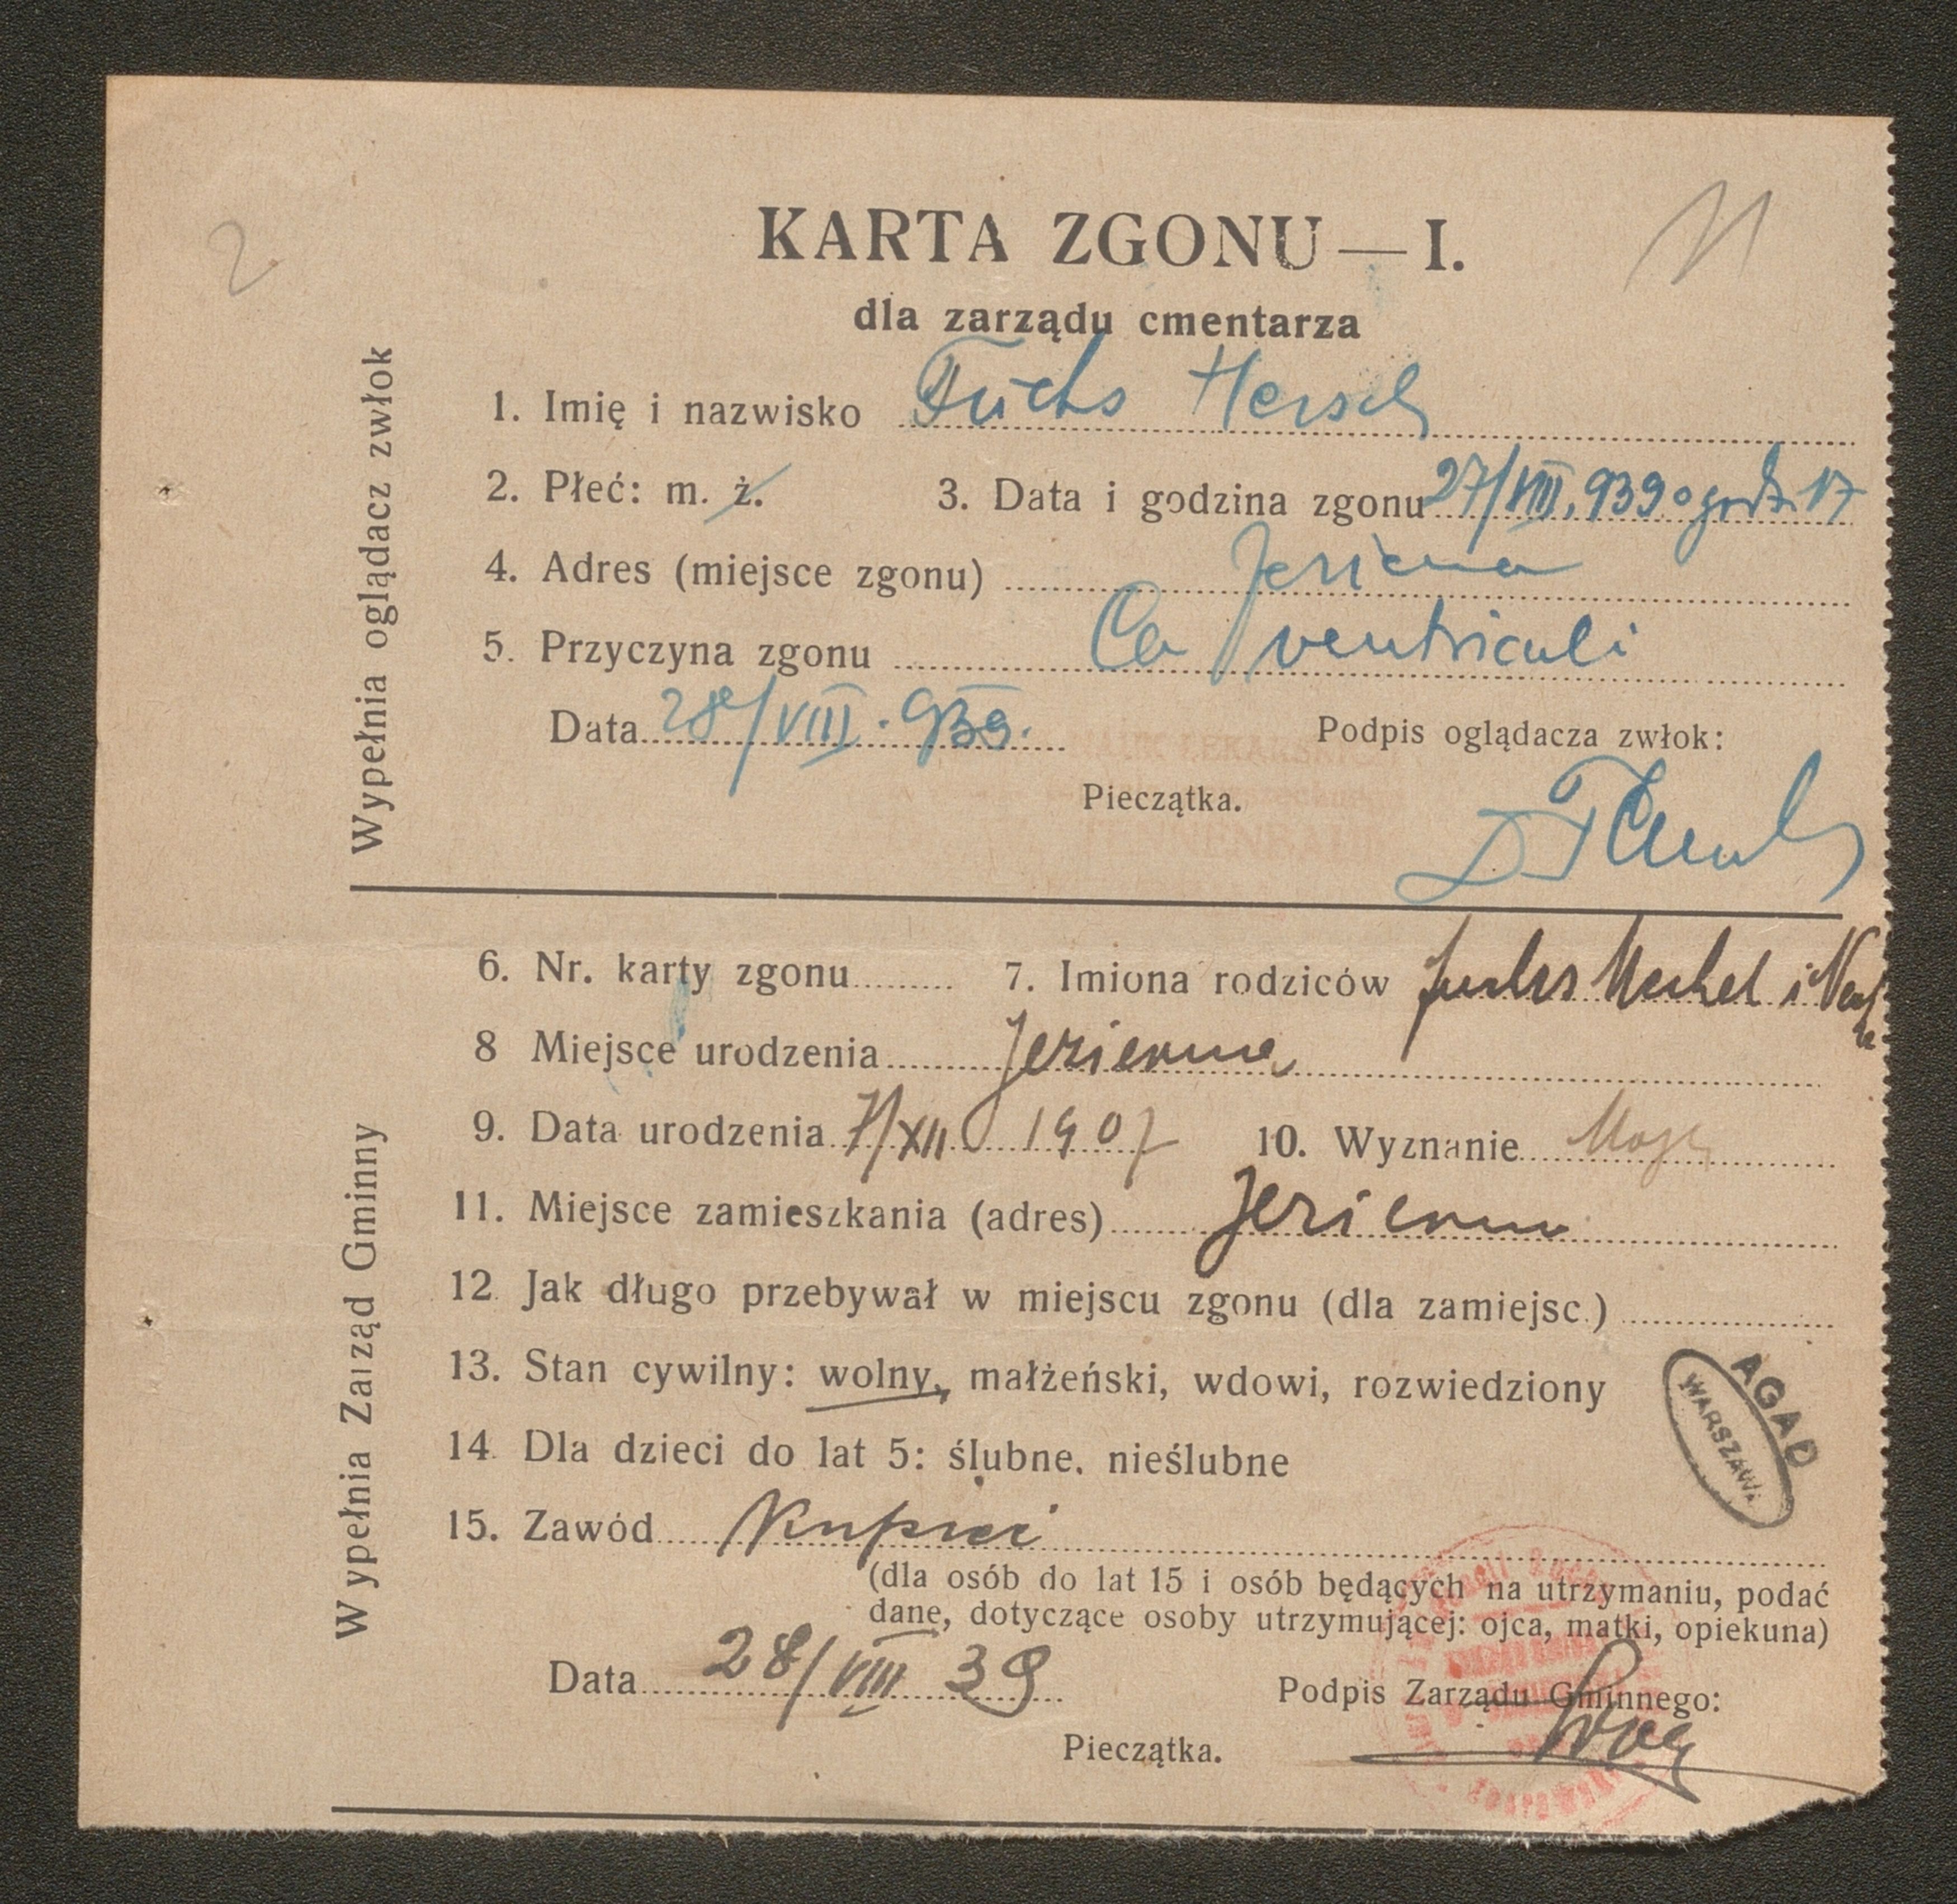 2
11
KARTA ZGONU — I.
dla zarządu cmentarza
Wypełnia oglądacz zwłok
1. Imię i nazwisko Fuchs Hersch
2. Płeć: m. ż. 3. Data i godzina zgonu 27/VIII. 939 o godz. 17
4. Adres (miejsce zgonu) Jezierna
5. Przyczyna zgonu Ca ventriculi
Data 28/VIII. 939. Podpis oglądacza zwłok:
Pieczątka.
Wypełnia Zarząd Gminny
6. Nr. karty zgonu 7. Imiona rodziców Fuchs Mechel i
8 Miejsce urodzenia Jezierna
9. Data urodzenia 7/XII 1907 10. Wyznanie Mojż
11. Miejsce zamieszkania (adres) Jezierna
12. Jak długo przebywał w miejscu zgonu (dla zamiejsc.)
13. Stan cywilny: wolny, małżeński, wdowi, rozwiedziony
14. Dla dzieci do lat 5: ślubne, nieślubne
AGAD
WARSZAWA
15. Zawód Kupiec
(dla osób do lat 15 i osób będących na utrzymaniu, podać
dane, dotyczące osoby utrzymującej: ojca, matki, opiekuna)
Data 28/VIII 39 Podpis Zarządu Gminnego:
Pieczątka.